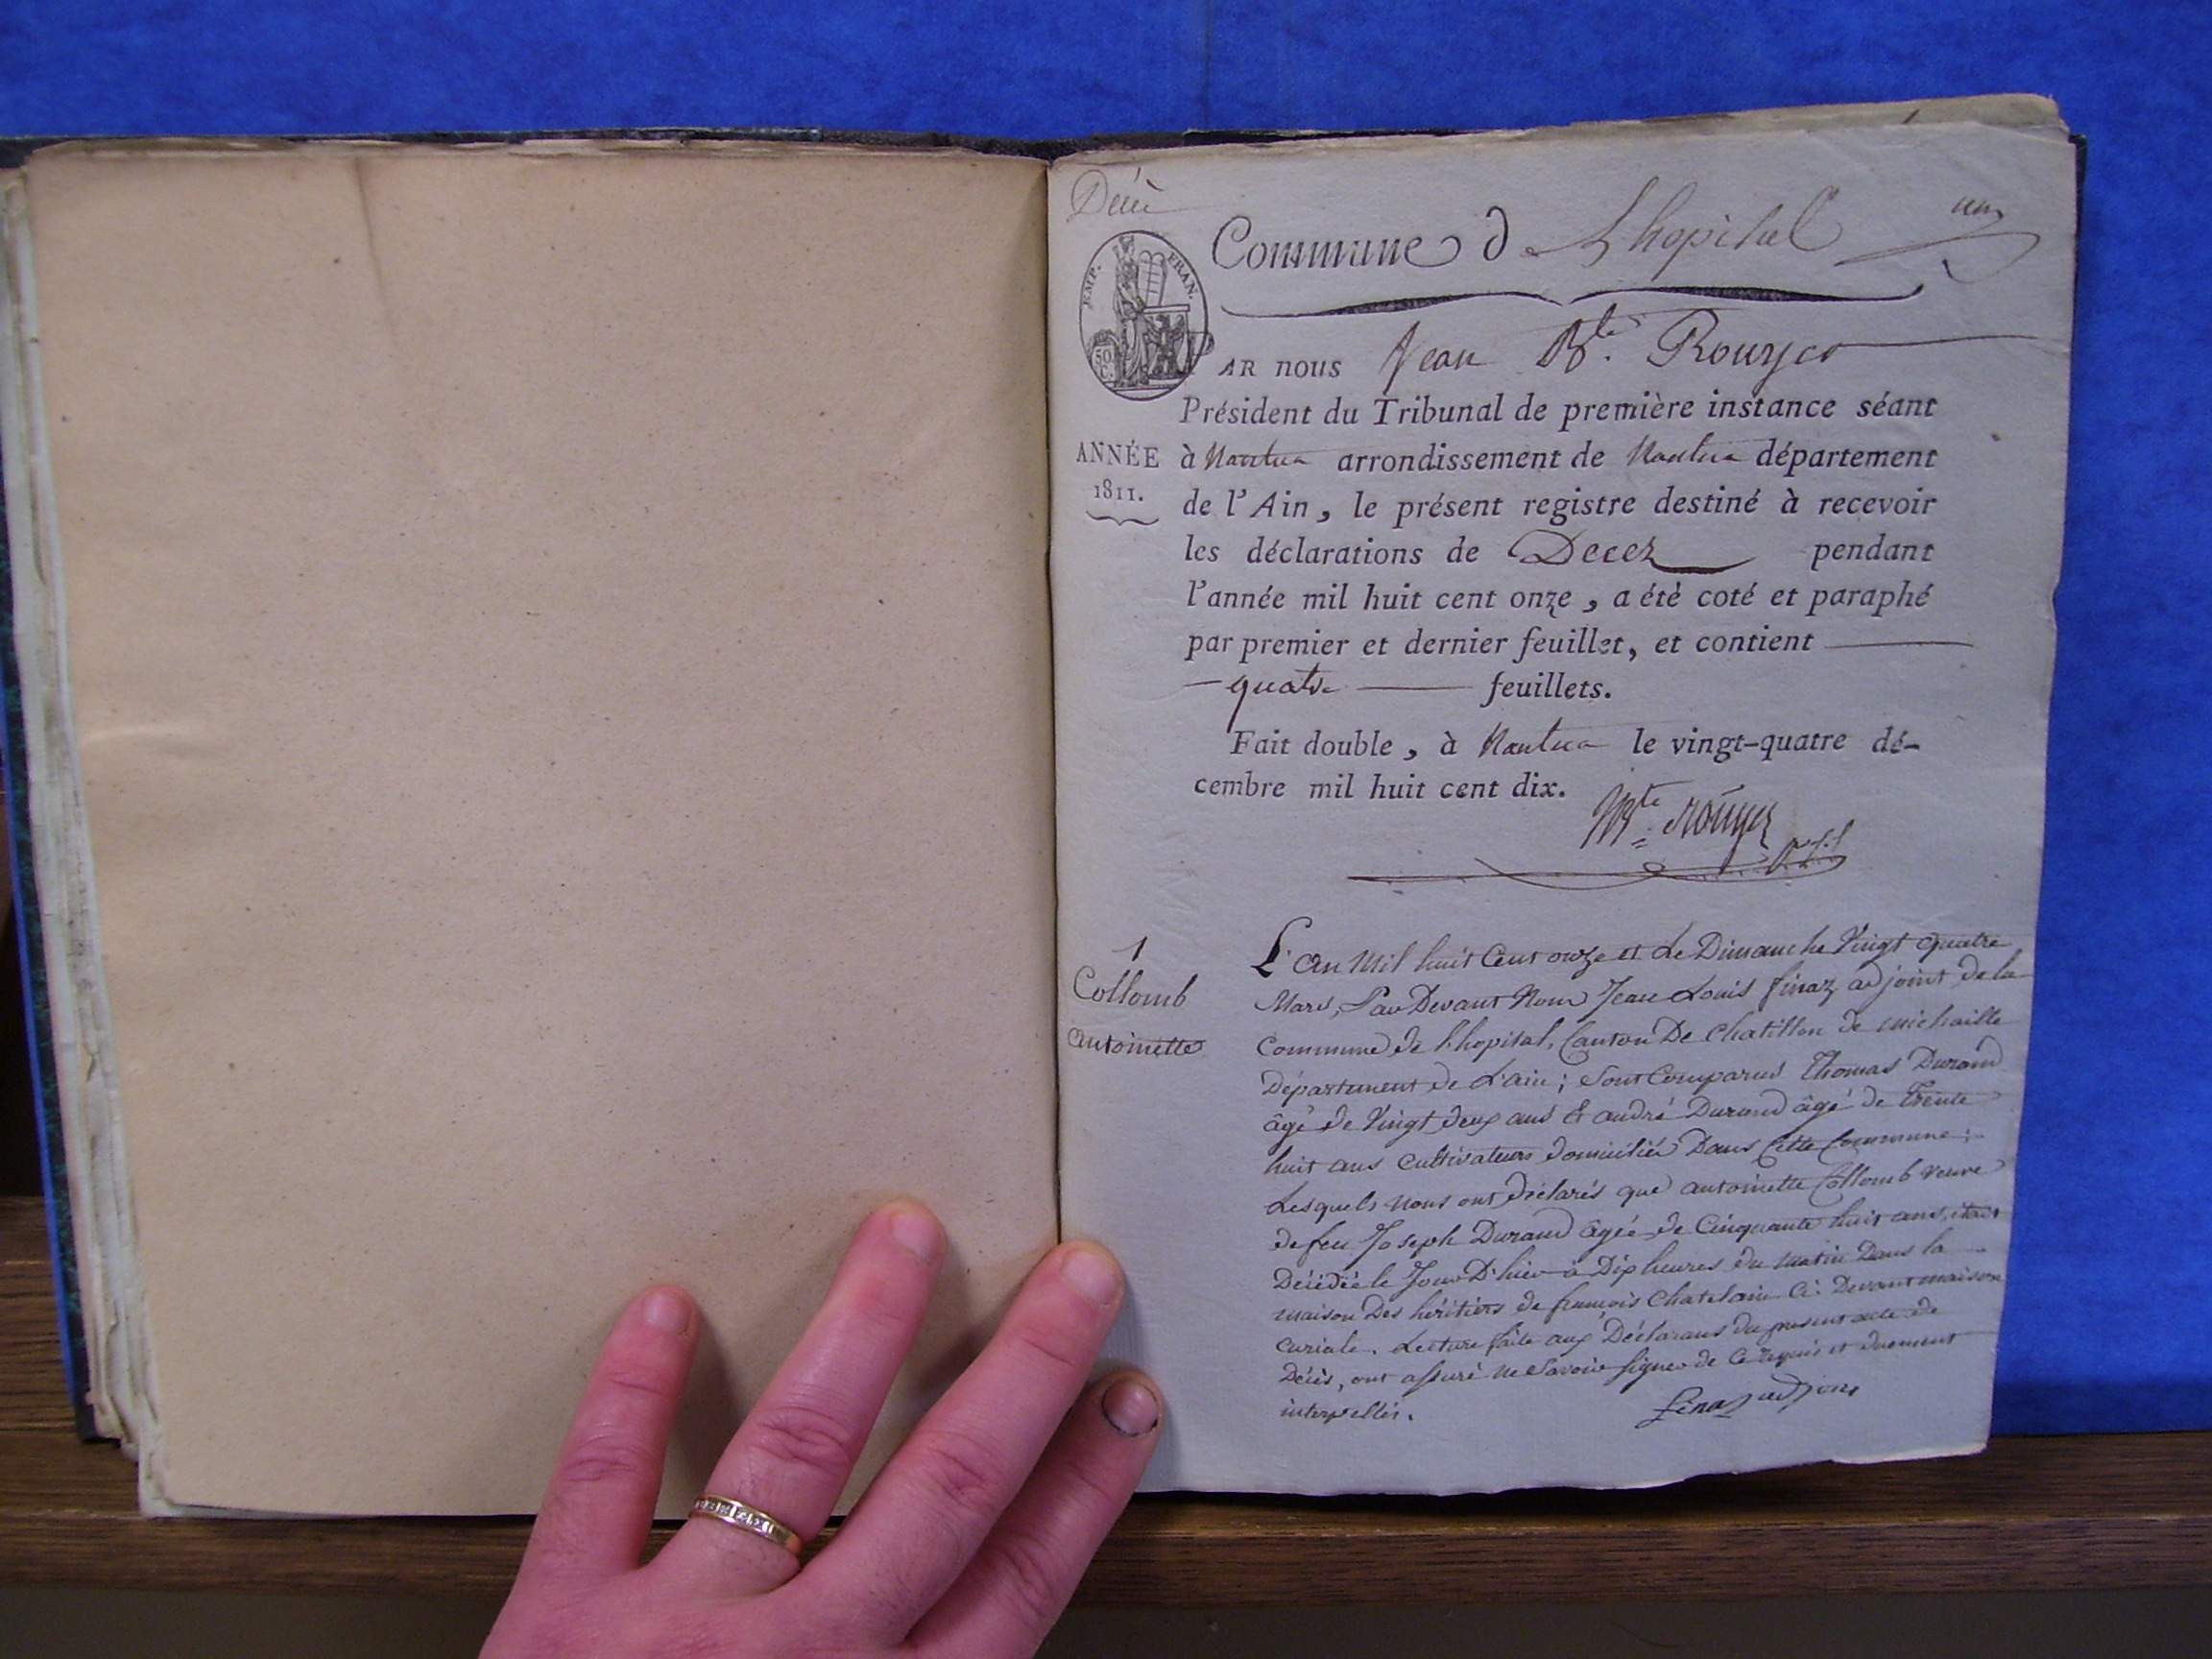 Décès
un
Commune d Lhopital
EMP. FRAN.
50 C.
PAR nous Jean Bte. Rouyer
Président du Tribunal de première instance séant
ANNÉE
1811.
à Nantua arrondissement de Nantua département
de l'Ain, le présent registre destiné à recevoir
les déclarations de Decez pendant
l'année mil huit cent onze, a été coté et paraphé
par premier et dernier feuillet, et contient
quatre feuillets.
Fait double, à Nantua le vingt-quatre dé-
cembre mil huit cent dix.
JBte. Rouyer
1
Collomb
antoinette
L'an Mil huit Cent onze et Le Dimanche Vingt quatre
Mars, Par Devant Nous Jean Louis finaz adjoint de la
Commune de Lhopital, Canton De Chatillon de michaille
Département de L'ain; Sont Comparus Thomas Durand
âgé de Vingt deux ans Et andré Durand âgé de Trente
huit ans Cultivateurs domiciliés Dans Cette Commune;
Lesquels Nous ont Déclarés que antoinette Collomb veuve
de feu Joseph Durand âgée de Cinquante huit ans, etait
Décédée le Jour D'hier à Dix heures du Matin Dans la
maison Des héritiers de françois Chatelain Ci-Devant maison
curiale. Lecture faite aux Déclarans du present acte de
Décès, ont assuré ne Savoir Signer de Ce requis et duement
interpellés.
Finaz adjoint